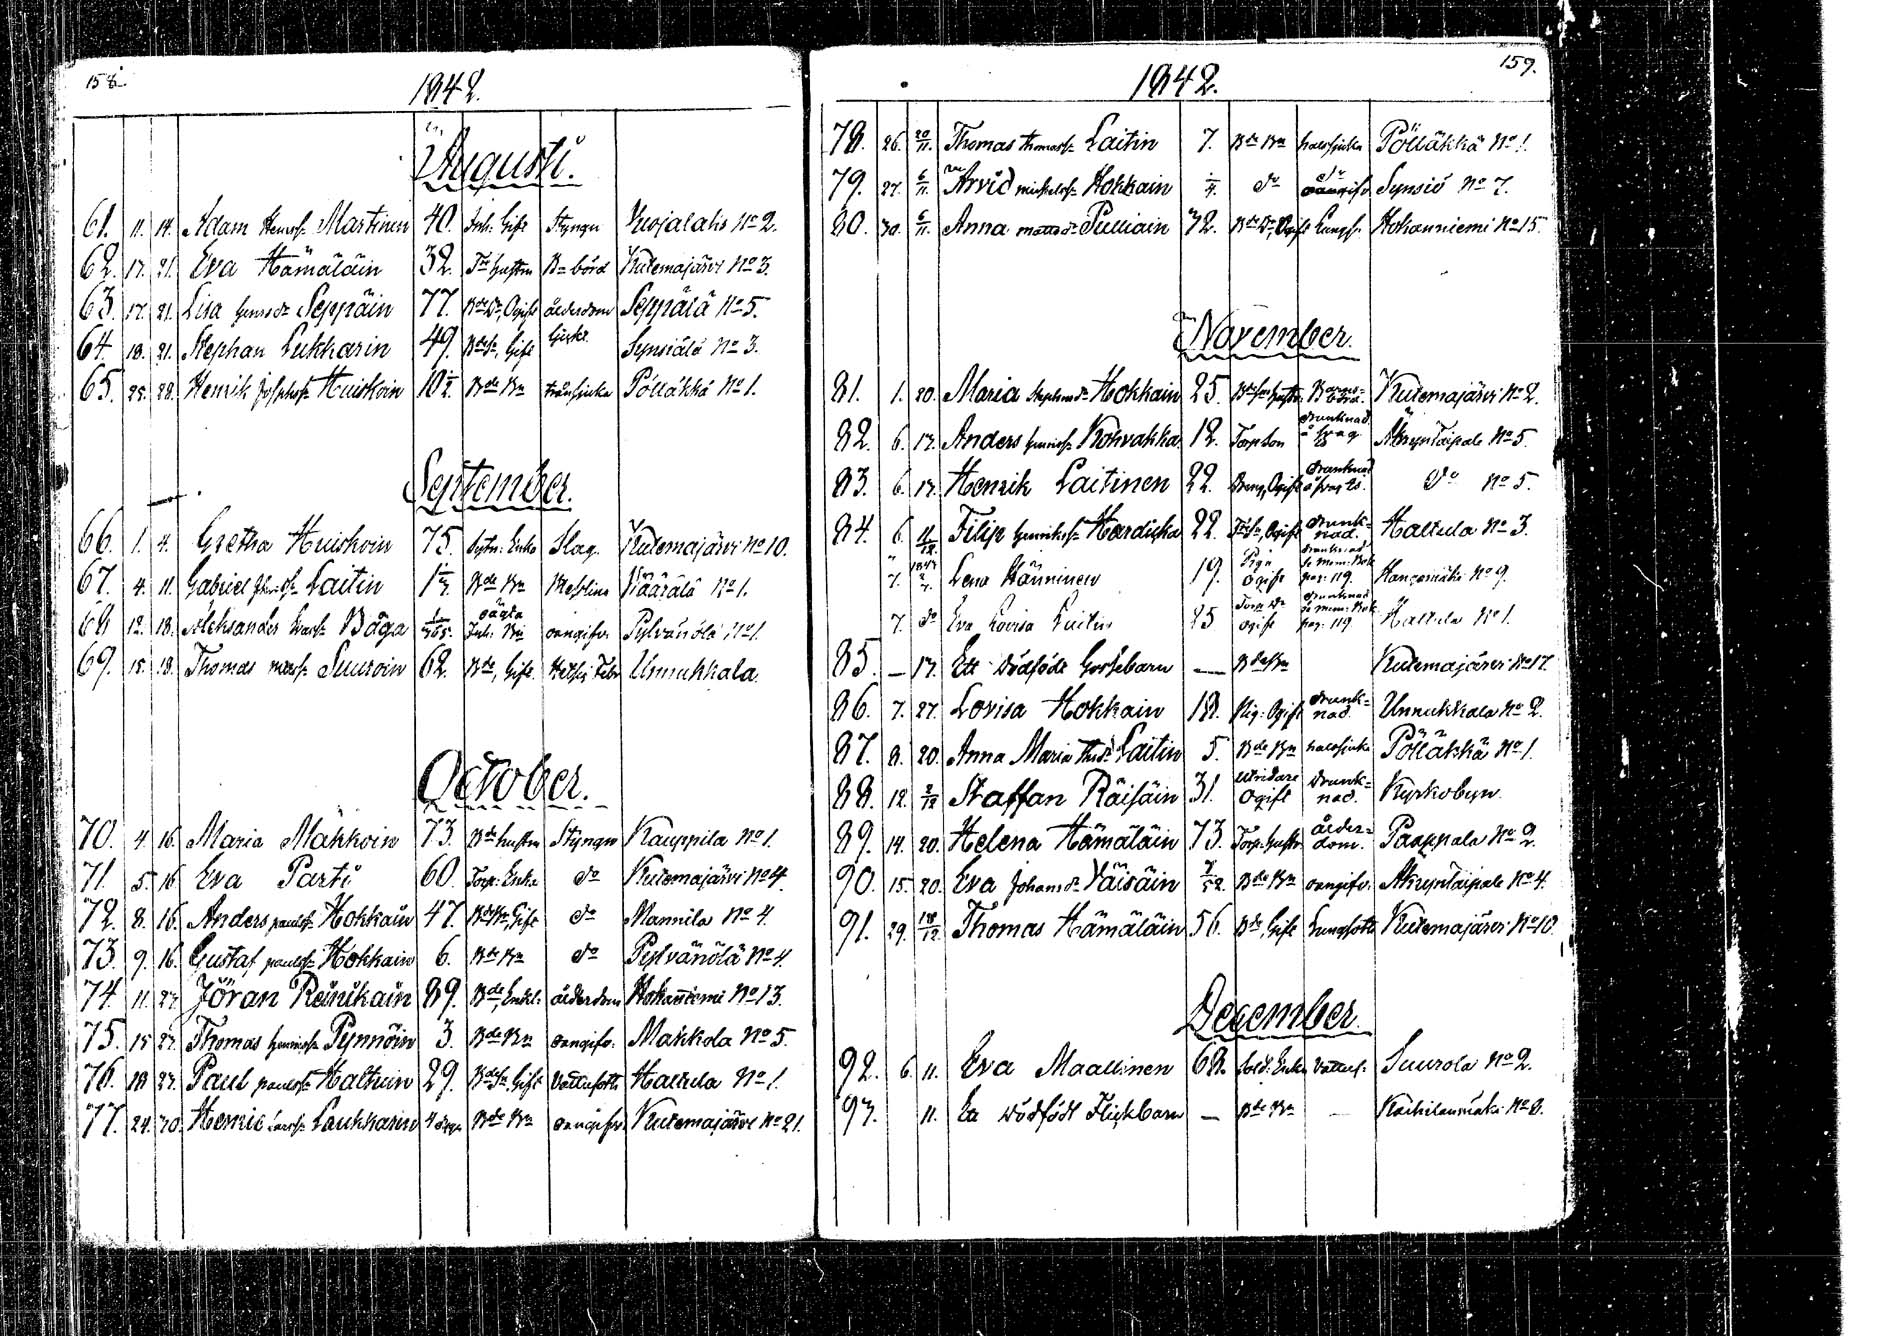 158.
1842.
i Augusti.
61. 11. 14. Adam Henrss: Martinen 40. Inh: Gift Styngn Vuojalahs No 2.
62. 17. 21. Eva Hämäläin 32. Hustru Bn börd Kutemajärvi No 3.
63. 17. 21. Lisa Henrsdr Seppäin 77. Bde Dr, Ogift ålderdom Seppälä No 5.
64. 18. 21. Stephan Lukkarin 49. Bdesn, Gift Synsiälä No 3.
65. 25. 28. Henrik Josephss: Huiskoin 10 1/2. Bde Bn tränsjuka Pölläkkä No 1.
September.
66. 1. 4. Gretha Huiskoin 75. Enka Slag. Kutemajärvi No 10.
67. 4. 11. Gabriel Laitin Bde Bn Messlin Määrälä No 1.
68 12. 18. Aleksander Båga 1/365. oägta Inh: Bn oangifv. Pylvänälä No 1.
69. 15. 18. Thomas matss: Suuroin 62. Bde, Gift. Hetsig Feber Unnukkala.
October.
70. 4. 16. Maria Mähkoin 73. Bde hustru Styngn Kauppila No 1.
71. 5. 16 Eva Parti 60. Torp: Enka do Kutemajärvi No 4.
72. 8. 16. Anders paulss: Hokkain 47. Gift do Mannila No 4.
73. 9. 16. Gustaf paulss: Hokkain 6. Bde Bn do Pylvänälä No 4.
74. 11. 23. Jöran Reinikain 89. Bde, Enkl: ålderdom Hohanniemi No 13.
75. 15 23. Thomas henrss: Pynnöin 3. Bde Bn oangifv. Makkola No 5.
76. 18 23. Paul paulss: Haltuin 29. Bdesn, Gift Vattusott Haltula No 1.
77. 24. 30. Henric Larss: Laukkarin 4 dygn Bde Bn oangifv. Kutemajärvi No 21.
159.
1842.
78. 26. 20/11. Thomas thomass: Laitin 7. Bde Bn halssjuka Pölläkkä No 1.
79. 27. 6/11. Arvid mickelss: Hokkain 1/4. do oangifv Synsiö No 7.
80. 30. 6/11. Anna mattsdr Pulliain 72. Bde Dr, Ogift Lungs: Hohanniemi No 15.
i November.
81. 1. 20. Maria Stephansdr Hokkain 25. Barnsbörd. Kutemajärvi No 2.
82. 6. 13. Anders henrss: Kokvakka 12. Torp Son drunknad Äkryntaipale No 5.
83. 6. 13. Henrik Laitinen 22. Dreng, Ogift drunknad do No 5.
84. 6. 11/12. Filip henrikss: Hardicka 22. Ogift drunknad. Haltula No 3.
7. 1843 Lena Hänninen 19. Piga ogift drunknad se Mem: Bok pag: 119. Hangasmäki No 9.
7. do Eva Lovisa 25 Torp Dr ogift drunknad se Mem: Bok pag: 119 Haltula No 1.
85. — 13. Ett dödfödt Gossebarn — Bde Bn Kutemajärvi No 17.
86. 7. 27. Lovisa Hokkain 18. Pig: Ogift drunknad. Unnukkala No 2.
87. 8. 20. Anna Maria Thsdr Laitin 5. Bde Bn halssjuka Pölläkkä No 1.
88. 12. 2/12 Staffan Räisäin 31. Utridare Ogift Drunknad. Kyrkobyn.
89. 14. 20. Helena Hämäläin 73. Torp: hustr ålderdom. Paappala No 2.
90. 15. 20. Eva Johansdr Väisäin 3/52. Bde Bn oangifv. Äkryntaipale No 4.
91. 29. 18/12. Thomas Hämäläin 56. Bde, Gift Lungsott Kutemajärvi No 10.
December.
92. 6. 11. Eva Maallinen 68. Sold: Enka Vattus: Suurola No 2.
93. 11. Ett dödfödt Flickbarn — Bde Bn — Kaihilanmäki No 8.